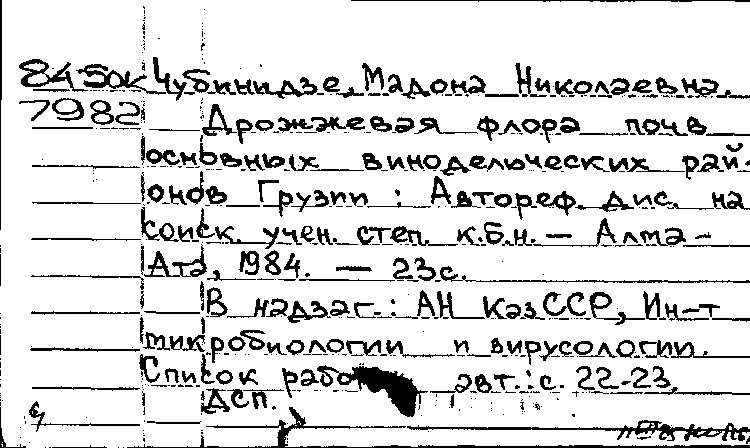 8450к Чубинидзе, Мадона Николаевна.
7982 Дрожжевая флора почв
основных винодельческих рай-
онов Грузии : Автореф. дис. на
соиск. учен. степ. к.б.н. — Алма-
Ата, 1984. — 23с.
В надзаг.: АН КазССР, Ин-т
микробиологии и вирусологии.
Список работ авт.: с. 22-23.
ДСП.